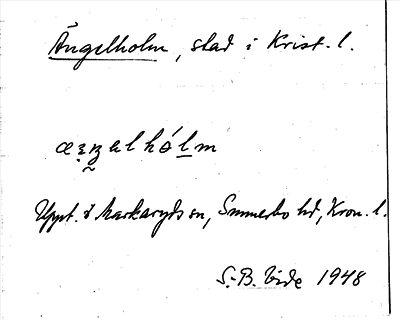 Ängelholm, stad i Krist. l.
Uppt. i Markaryds sn, Sunnerbo hd, Kron. l.
S.-B. Vide 1948